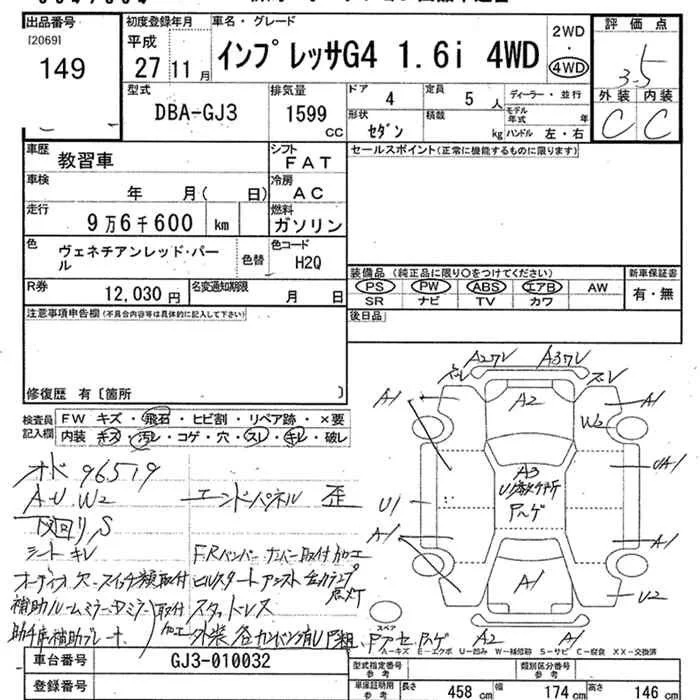 出品番号
[2069]
149
初度登録年月
平成
27 11 月
車名・グレード
インプレッサG4 1.6i 4WD
2WD
・
4WD
評価点
3.5
外装 内装
C C
型式
DBA-GJ3
排気量
1599
cc
ドア
4
定員
5 人
ディーラー・並行
形状
セダン
積載
kg
モデル年式 年
ハンドル 左・右
車歴
教習車
シフト
FAT
セールスポイント(正常に機能するものに限ります)
車検
年 月( 日)
冷房
AC
走行
9万6千600 km
燃料
ガソリン
色
ヴェネチアンレッド・パール
色替
色コード
H2Q
装備品 (純正品に限り○をつけてください)
新車保証書
PS PW ABS エアB AW
有・無
SR ナビ TV カワ
R券
12,030 円
名変通知期限
月 日
後日品
注意事項申告欄(不具合内容等は具体的に記入して下さい)
修復歴 有〔箇所 〕
検査員
記入欄
FW キズ・飛石・ヒビ割・リペア跡・×要
内装 キズ・汚レ・コゲ・穴・スレ・キレ・破レ
オド 96519
A.U.W2 エンドパネル 歪
下回りS
シートキレ F.Rバンパー ナンバー取付加工
オーディオ欠 スイッチ類取付 ヒルスタートアシスト
補助ルームミラー・Dミラー 取付 スタッドレス
助手席補助ブレーキ 加工 外装 各
A27レ A37レ
ズレ ズレ
A1 A2 A1
W2
A3
UA1
U1
A1 A1
A1
U2
スペア
A2 A1
A－キズ E－エクボ U－凹み W－補修跡 S－サビ C－腐食 XX－交換済
車台番号
GJ3-010032
型式指定番号
参考
類別区分番号
参考
登録番号
車検証明用
参考
長さ
458 cm
幅
174 cm
高さ
146 cm